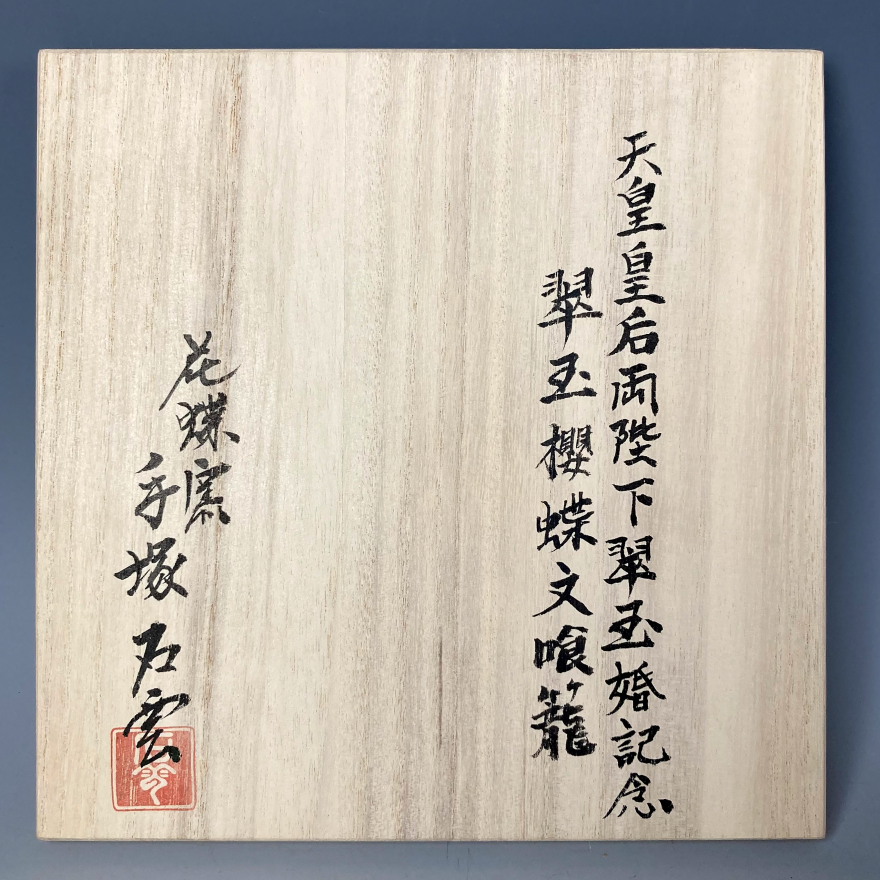 天皇皇后両陛下翠玉婚記念
翠玉櫻蝶文喰籠
花蝶窯
手塚石雲
石雲